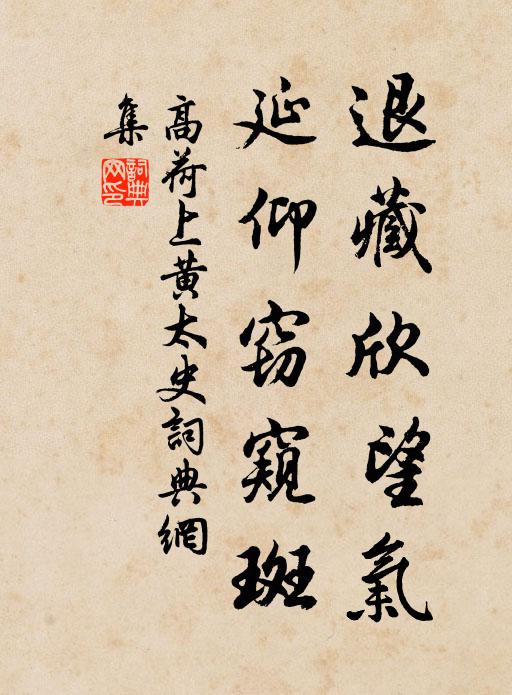 退藏欣望氣
延仰窃窺斑
高荷上黄太史詞典網
集
詞典网印